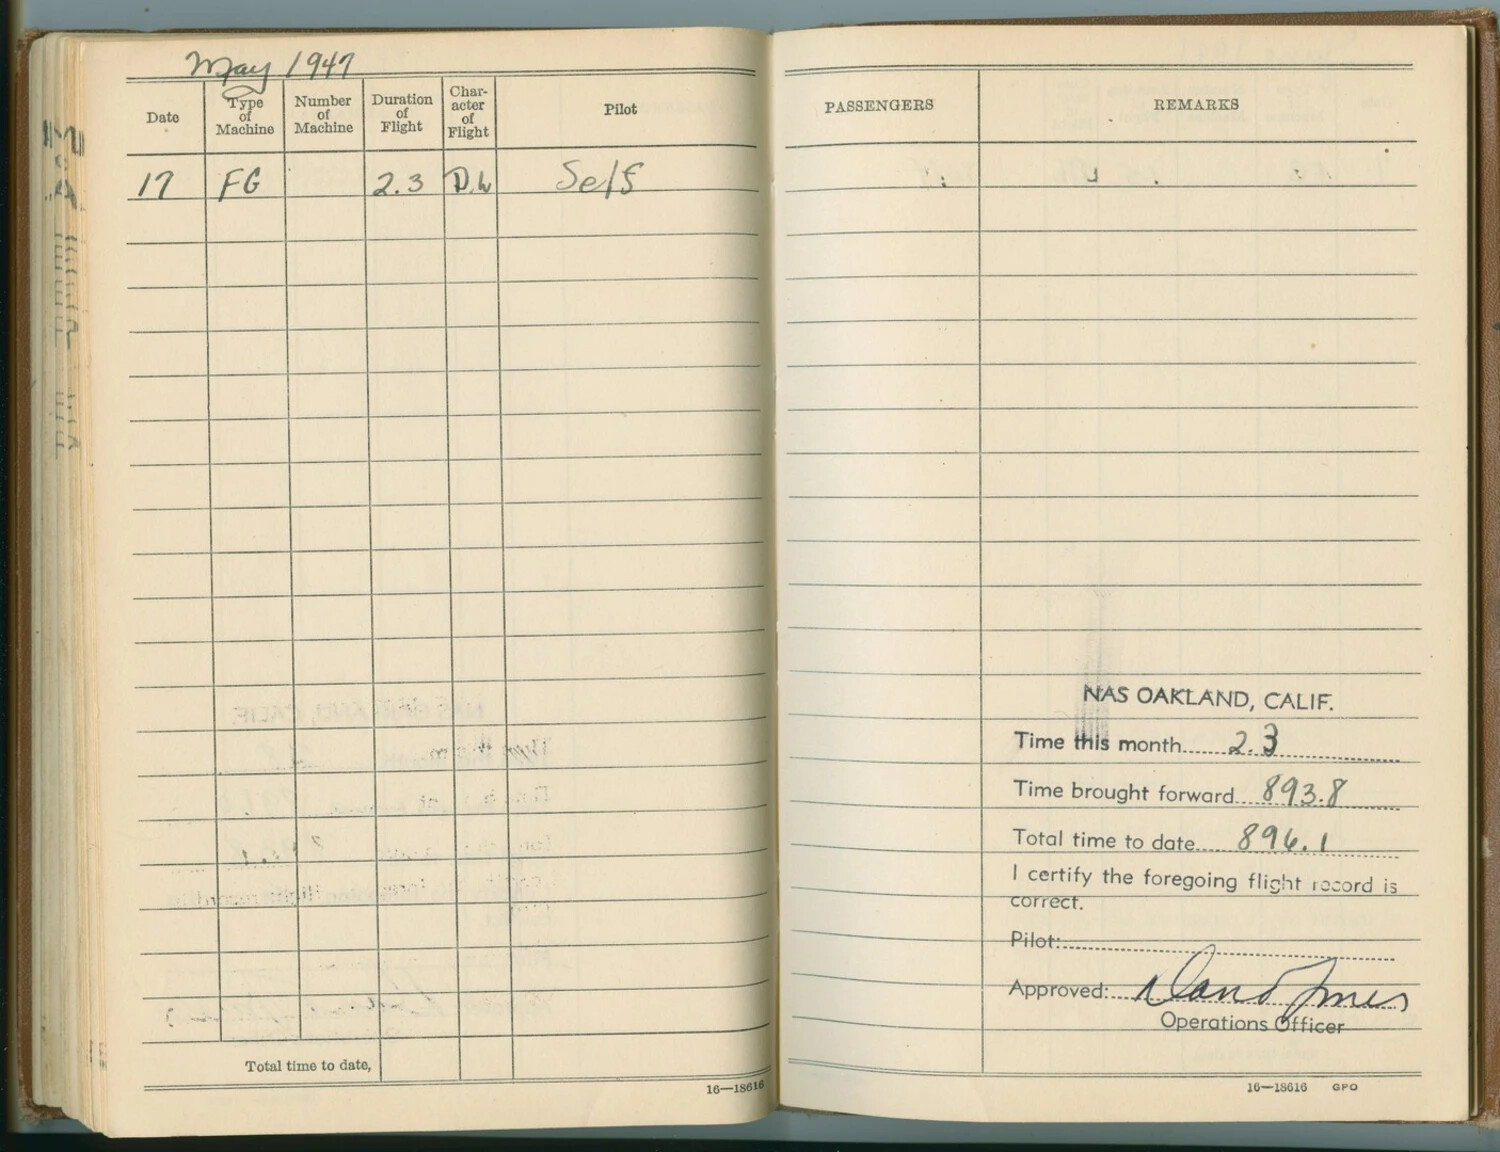 May 1947
Date
Type
of
Machine
Number
of
Machine
Duration
of
Flight
Char-
acter
of
Flight
Pilot
PASSENGERS
REMARKS
17 FG 2.3 Self
NAS OAKLAND, CALIF.
Time this month 2.3
Time brought forward 893.8
Total time to date 896.1
I certify the foregoing flight record is
correct.
Pilot:
Approved:
Operations Officer
Total time to date,
16—18616
16—18616 GPO